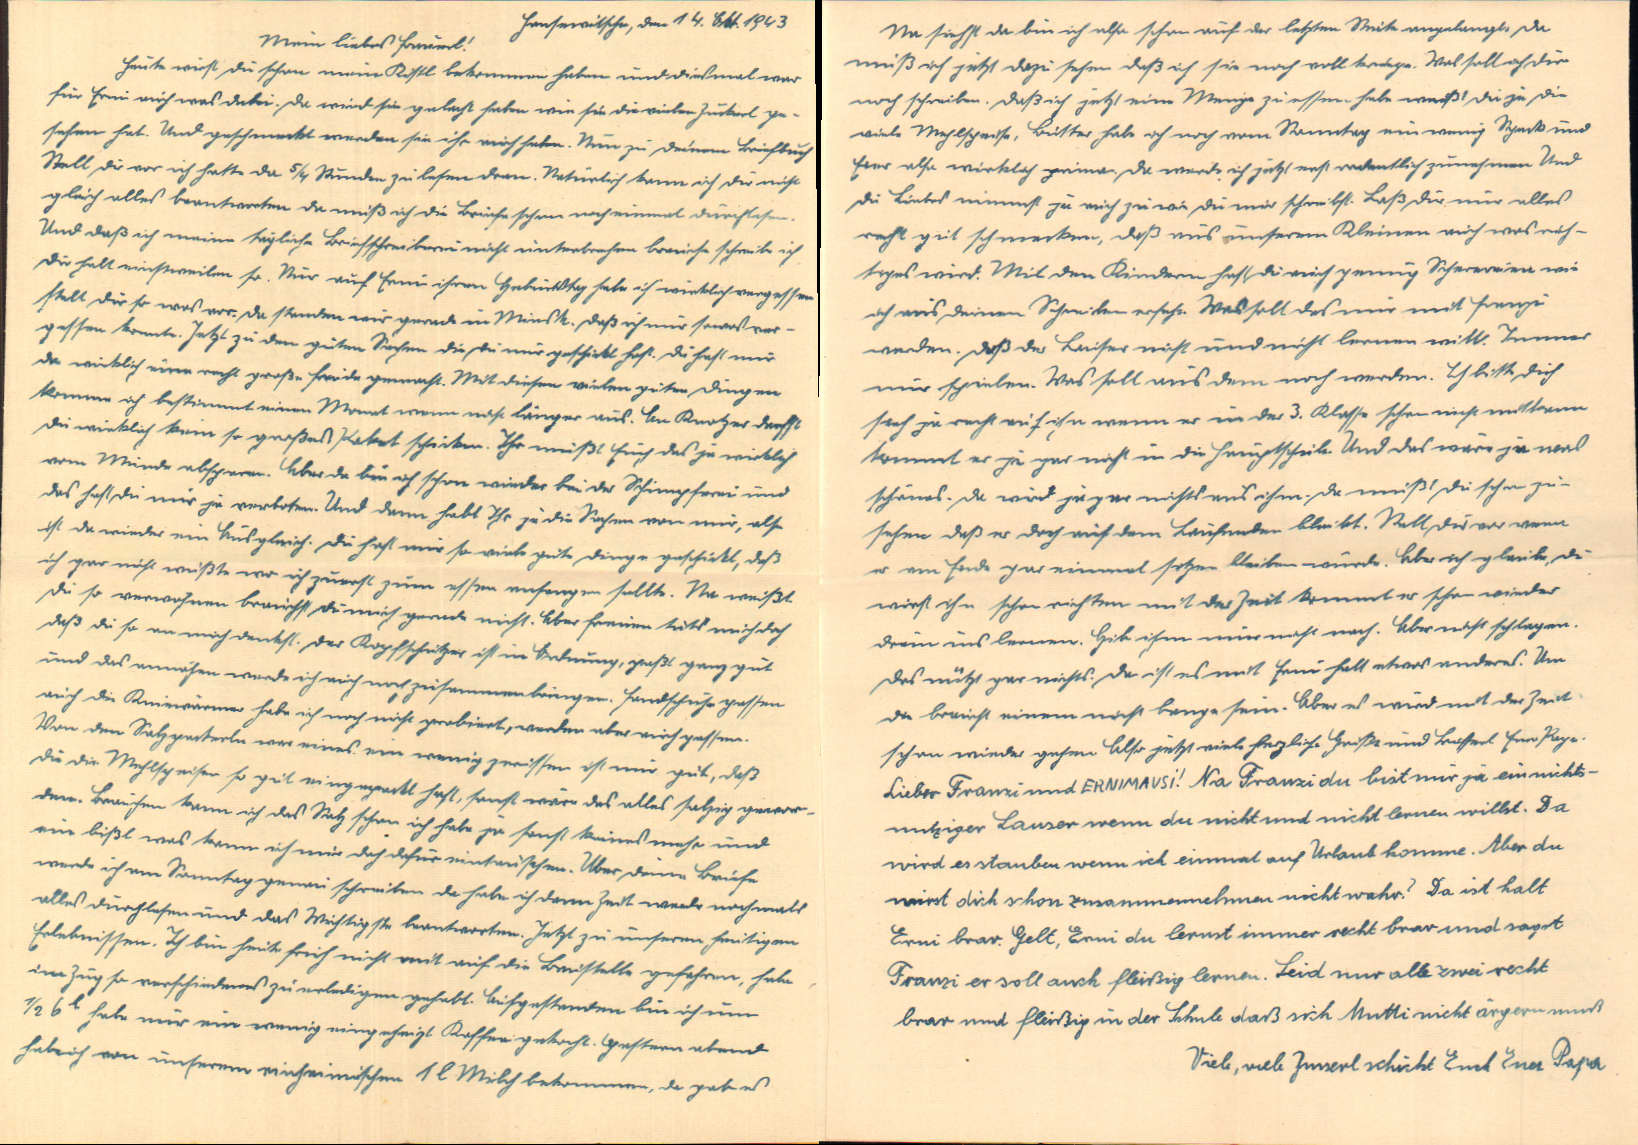 Hansewitsche, den 14. Okt. 1943
Mein liebes Frauerl!
Heute wirst du schon mein Kistl bekommen haben und diesmal war
für Erni auch was dabei. Da wird sie gelacht haben wie sie die vielen Zuckerl ge-
sehen hat. Und geschmeckt werden sie ihr auch haben. Nun zu deinem Briefbuch
Stell dir vor ich hatte da 5/4 Stunden zu lesen dran. Natürlich kann ich dir nicht
gleich alles beantworten da muß ich die Briefe schon noch einmal durchlesen.
Und daß ich meine tägliche Briefschreiberei nicht unterbrechen brauche schreibe ich
dir halt einstweilen so. Nur auf Erni ihren Geburtstag habe ich wirklich vergessen
stell dir so was vor. Da standen wir gerade in Minsk. Daß ich nur sowas ver-
gessen konnte. Jetzt zu den guten Sachen die du mir geschickt hast. Du hast mir
da wirklich eine recht große Freude gemacht. Mit diesen vielen guten Dingen
komme ich bestimmt einen Monat wenn nicht länger aus. Du darfst
du wirklich kein so großes Paket schicken. Ihr müßt Euch das ja wirklich
vom Munde absparen. Aber da bin ich schon wieder bei der Schimpferei und
das hast du mir ja verboten. Und dann habt Ihr ja die Sachen von mir, also
ist da wieder ein Ausgleich. Du hast mir so viele gute Dinge geschickt, daß
ich gar nicht wußte wo ich zuerst zum essen anfangen sollte. Na weißt
du so verwöhnen brauchst du mich gerade nicht. Aber freuen tuts mich doch
daß du so an mich denkst. Der Kopfschützer ist in Ordnung, paßt ganz gut
und das annähen werde ich auch noch zusammenbringen. Handschuhe passen
auch die Kniewärmer habe ich noch nicht probiert, werden aber auch passen.
Von den Salzpackerln war eines ein wenig zerissen ist nur gut, daß
du die Mehlspeisen so gut eingepackt hast, sonst wäre das alles salzig gewor-
den. Brauchen kann ich das Salz schon ich habe ja sonst keines mehr und
ein bißl was kann ich mir doch dafür eintauschen. Über deine Briefe
werde ich am Sonntag genau schreiben da habe ich dann Zeit werde nochmals
alles durchlesen und das Wichtigste beantworten. Jetzt zu unseren heutigen
Erlebnissen. Ich bin heute früh nicht mit auf die Baustelle gefahren, habe
im Zug so verschiedenes zu erledigen gehabt. Aufgestanden bin ich um
1/2 6 h habe mir ein wenig eingeheizt Kaffee gekocht. Gestern abend
habe ich von unserem einheimischen 1 l Milch bekommen, da gab es
Na siehst da bin ich also schon auf der letzten Seite angelangt. Da
muß ich jetzt dazu sehen daß ich sie noch voll kriege. Was soll ich dir
noch schreiben. Daß ich jetzt eine Menge zu essen habe weißt du ja die
viele Mehlspeise, Butter habe ich noch vom Sonntag ein wenig Speck und
Eier also wirklich prima. Da werde ich jetzt erst ordentlich zunehmen Und
du Liebes nimmst ja auch zu wie du mir schreibst. Laß dir nur alles
recht gut schmecken, daß aus unserem Kleinen auch was rich-
tiges wird. Mit den Kindern hast du auch genug Scherereien wie
ich aus deinem Schreiben ersehe. Was soll das nur mit Franzi
werden. Daß der Lauser nicht und nicht lernen will. Immer
nur spielen. Was soll aus dem noch werden. Ich bitte dich
sech ja recht auf ihn wenn er in der 3. Klasse schon nicht mitkann
kommt er ja gar nicht in die Hauptschule. Und das wäre ja was
schönes. Da wird ja gar nichts aus ihm. Da mußt du schon zu-
sehen daß er doch auf dem Laufenden bleibt. Stell dir vor wenn
er am Ende gar einmal sitzen bleiben würde. Aber ich glaube, du
wirst ihn schon richten mit der Zeit kommt er schon wieder
drein ins lernen. Gib ihm nur nicht nach. Aber nicht schlagen.
Das nützt gar nichts. Da ist es mit Erni halt etwas anderes. Um
die braucht einem nicht bange sein. Aber es wird mit der Zeit
schon wieder gehen Also jetzt viele herzliche Grüße und Busserl Euer Papa.
Lieber Franzi und ERNIMAUSI! Na Franzi du bist mir ja ein nichts-
nutziger Lauser wenn du nicht und nicht lernen willst. Da
wird es stauben wenn ich einmal auf Urlaub komme. Aber du
wirst dich schon zusammennehmen nicht wahr? Da ist halt
Erni brav. Gelt, Erni du lernst immer recht brav und sagst
Franzi er soll auch fleißig lernen. Seid nur alle zwei recht
brav und fleißig in der Schule daß sich Mutti nicht ärgern muß
Viele, viele Busserl schickt Euch Euer Papa